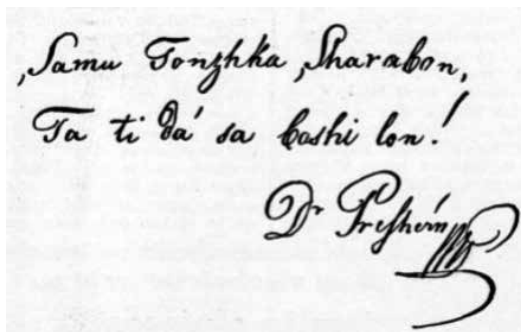 Samu Tonzhka Sharabon,
Ta ti dá sa boshi lon!
Dr Preshérn